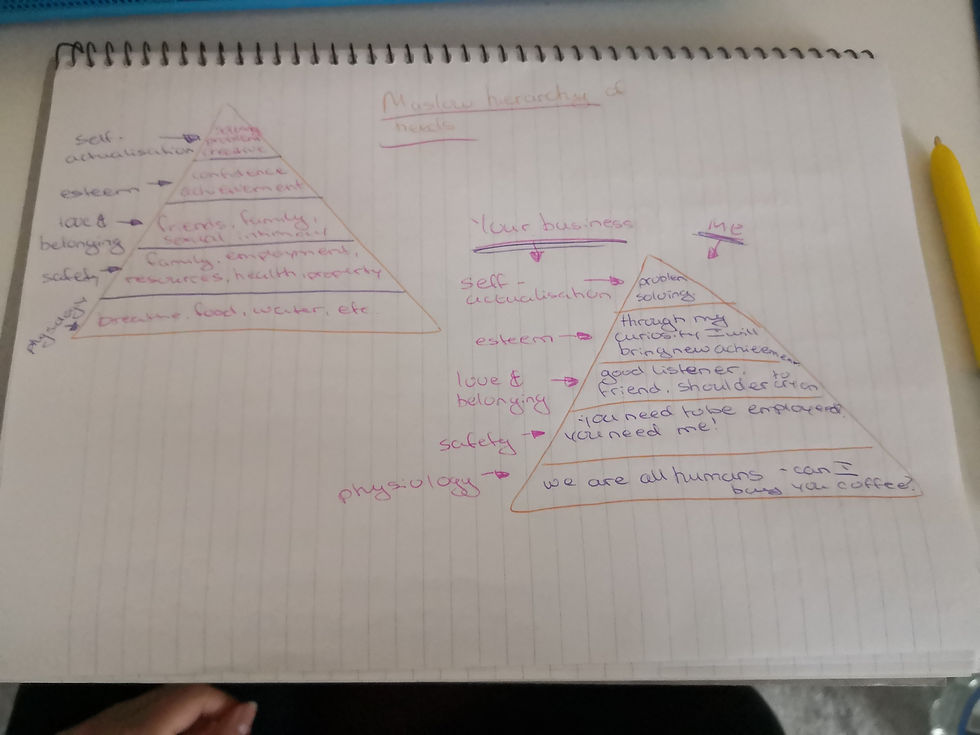 Maslow hierarchy of
needs
self-
actualisation
problem
creative
esteem
confidence
achievement
love &
belonging
friends, family,
sexual intimacy
safety
family, employment,
resources, health, property
physiology
breathe, food, water, etc
Your business
Me
self-
actualisation
problem
solving
esteem
through my
curiosity I will
bring new achievement
love &
belonging
good listener,
friend, shoulder to cry on
safety
you need to be employed,
you need me!
physiology
we are all humans - can I
buy you coffee?